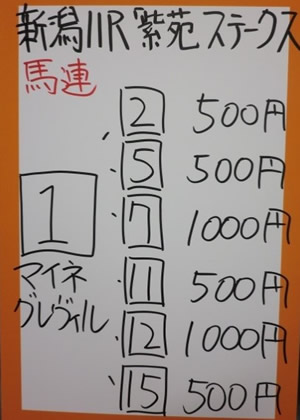 新潟11R 紫苑ステークス
馬連
2 500円
5 500円
7 1000円
1
11 500円
マイネ
グレヴィル
12 1000円
15 500円